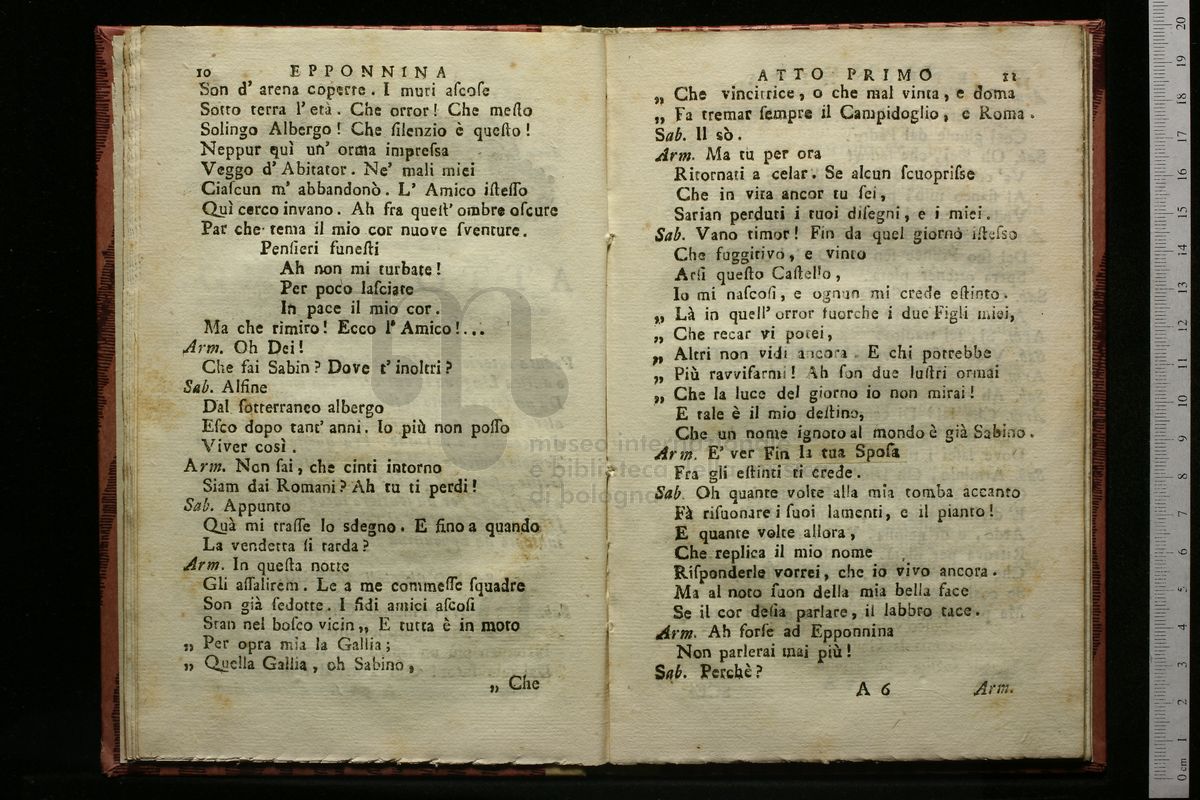 10 EPPONNINA
Son d' arena coperte. I muri aſcoſe
Sotto terra l' età. Che orror! Che meſto
Solingo Albergo! Che ſilenzio è queſto!
Neppur quì un' orma impreſsa
Veggo d' Abitator. Ne' mali miei
Ciaſcun m' abbandonò. L' Amico iſteſſo
Quì cerco invano. Ah fra queſt' ombre oſcure
Par che tema il mio cor nuove ſventure.
Penſieri funeſti
Ah non mi turbate!
Per poco laſciate
In pace il mio cor.
Ma che rimiro! Ecco l' Amico!...
Arm. Oh Dei!
Che fai Sabin? Dove t' inoltri?
Sab. Alfine
Dal ſotterraneo albergo
Eſco dopo tant' anni. Io più non poſſo
Viver così.
Arm. Non ſai, che cinti intorno
Siam dai Romani? Ah tu ti perdi!
Sab. Appunto
Quà mi traſſe lo sdegno. E fino a quando
La vendetta ſi tarda?
Arm. In queſta notte
Gli aſſalirem. Le a me commeſſe ſquadre
Son già ſedotte. I fidi amici aſcoſi
Stan nel boſco vicin,, E tutta è in moto
„ Per opra mia la Gallia;
„ Quella Gallia, oh Sabino,
„ Che
ATTO PRIMO 11
„ Che vincitrice, o che mal vinta, e doma
„ Fa tremar ſempre il Campidoglio, e Roma.
Sab. Il sò.
Arm. Ma tu per ora
Ritornati a celar. Se alcun ſcuopriſse
Che in vita ancor tu ſei,
Sarian perduti i tuoi diſegni, e i miei.
Sab. Vano timor! Fin da quel giorno iſteſso
Che fuggitivo, e vinto
Arſi queſto Caſtello,
Io mi naſcoſi, e ognun mi crede eſtinto.
„ Là in quell' orror fuorche i due Figli miei,
„ Che recar vi potei,
„ Altri non vidi ancora. E chi potrebbe
„ Più ravviſarmi! Ah ſon due luſtri ormai
„ Che la luce del giorno io non mirai!
E tale è il mio deſtino,
Che un nome ignoto al mondo è già Sabino.
Arm. E' ver Fin la tua Spoſa
Fra gli eſtinti ti crede.
Sab. Oh quante volte alla mia tomba accanto
Fà riſuonare i ſuoi lamenti, e il pianto!
E quante volte allora,
Che replica il mio nome
Riſponderle vorrei, che io vivo ancora.
Ma al noto ſuon della mia bella face
Se il cor deſia parlare, il labbro tace.
Arm. Ah forſe ad Epponnina
Non parlerai mai più!
Sab. Perchè?
A 6 Arm.